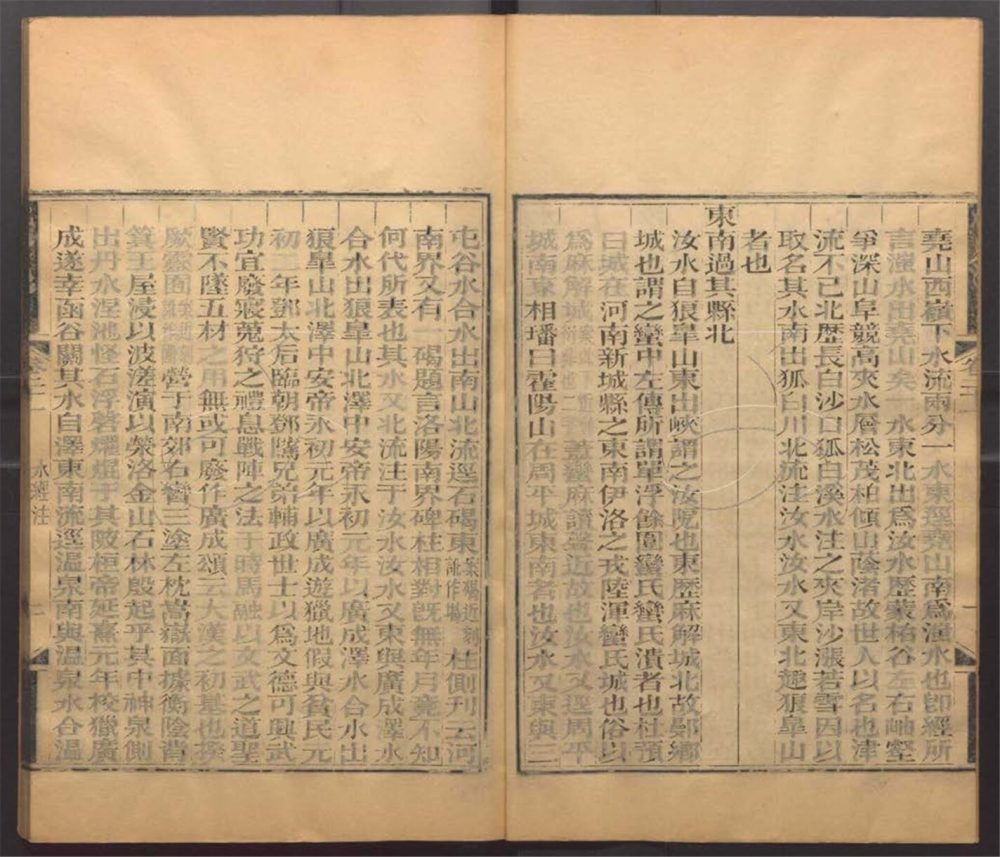 堯山西嶺下水流兩分一水東逕堯山南爲滍水也卽經所
言滍水出堯山矣一水東北出爲汝水歷蒙柏谷左右岫壑
爭深山阜競高夾水層松茂柏傾山蔭渚故世人以名也津
流不已北歷長白沙口狐白溪水注之夾岸沙漲若雪因以
取名其水南出狐白川北流注汝水汝水又東北趣狼皐山
者也
東南過其縣北
汝水自狼皐山東出峽謂之汝阨也東歷麻解城北故鄤鄉
城也謂之蠻中左傳所謂單浮餘圍蠻氏蠻氏潰者也杜預
曰城在河南新城縣之東南伊洛之戎陸渾蠻氏城也俗以
爲麻解城蓋蠻麻讀聲近故也汝水又逕周平
城南東相璠曰霍陽山在周平城東南者也汝水又東與三
屯谷水合水出南山北流逕石碣東案碣近刻訛作場柱側刊云河
南界又有一碣題言洛陽南界碑柱相對旣無年月竟不知
何代所表也其水又北流注于汝水汝水又東與廣成澤水
合水出狼皐山北澤中安帝永初元年以廣成澤水合水出
狼皐山北澤中安帝永初元年以廣成遊獵地假與貧民元
初二年鄧太后臨朝鄧騭兄弟輔政世士以爲文德可興武
功宜廢寢蒐狩之禮息戰陣之法于時馬融以文武之道聖
賢不墜五材之用無或可廢作廣成頌云大漢之初基也揆
厥靈囿營于南郊右矕三塗左枕嵩嶽面據衡陰背
箕王屋浸以波溠演以滎洛金山石林殷起平其中神泉側
出丹水涅池怪石浮磬燿焜于其陂桓帝延熹元年校獵廣
成遂幸函谷關其水自澤東南流逕溫泉南與溫泉水合溫
卷二
一
卷二
水經注